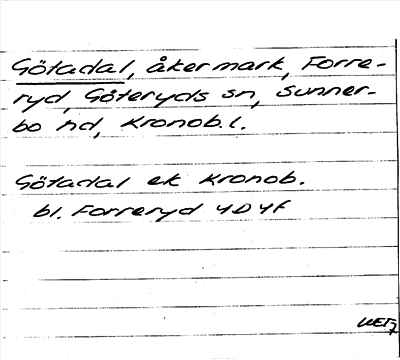 Götadal, åkermark, Forre-
ryd, Göteryds sn, Sunner-
bo hd, Kronob.l.
Götadal ek Kronob.
bl. Forreryd 4D4f